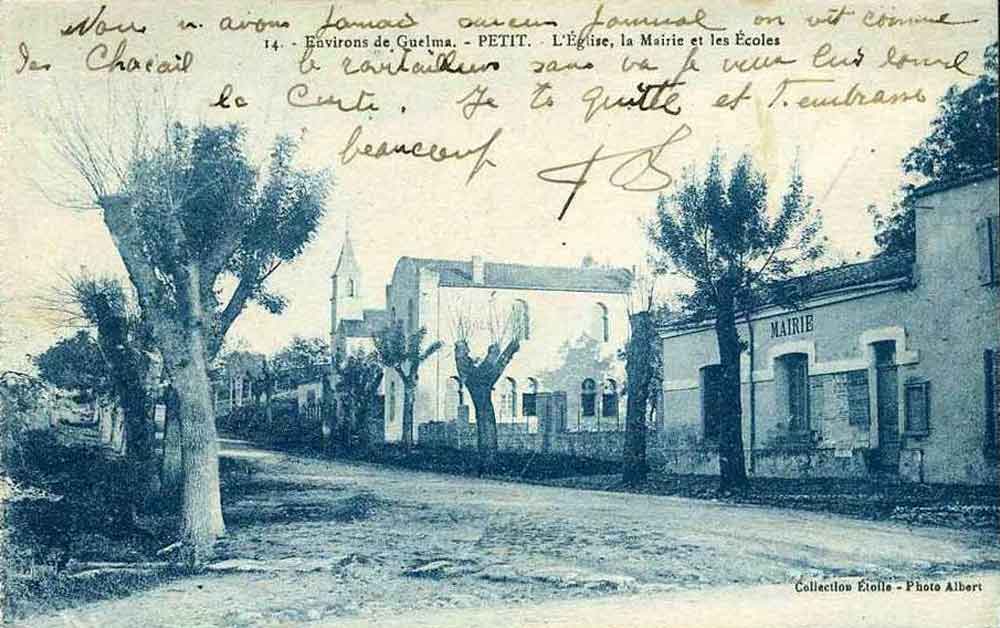 Nous n avons Jamais aucun Journal on vit comme
14. - Environs de Guelma. - PETIT. - L'Église, la Mairie et les Écoles
des Chacail le sans va je veux
la Carte. Je te quitte et T'embrasse
beaucoup
MAIRIE
Collection Étoile - Photo Albert